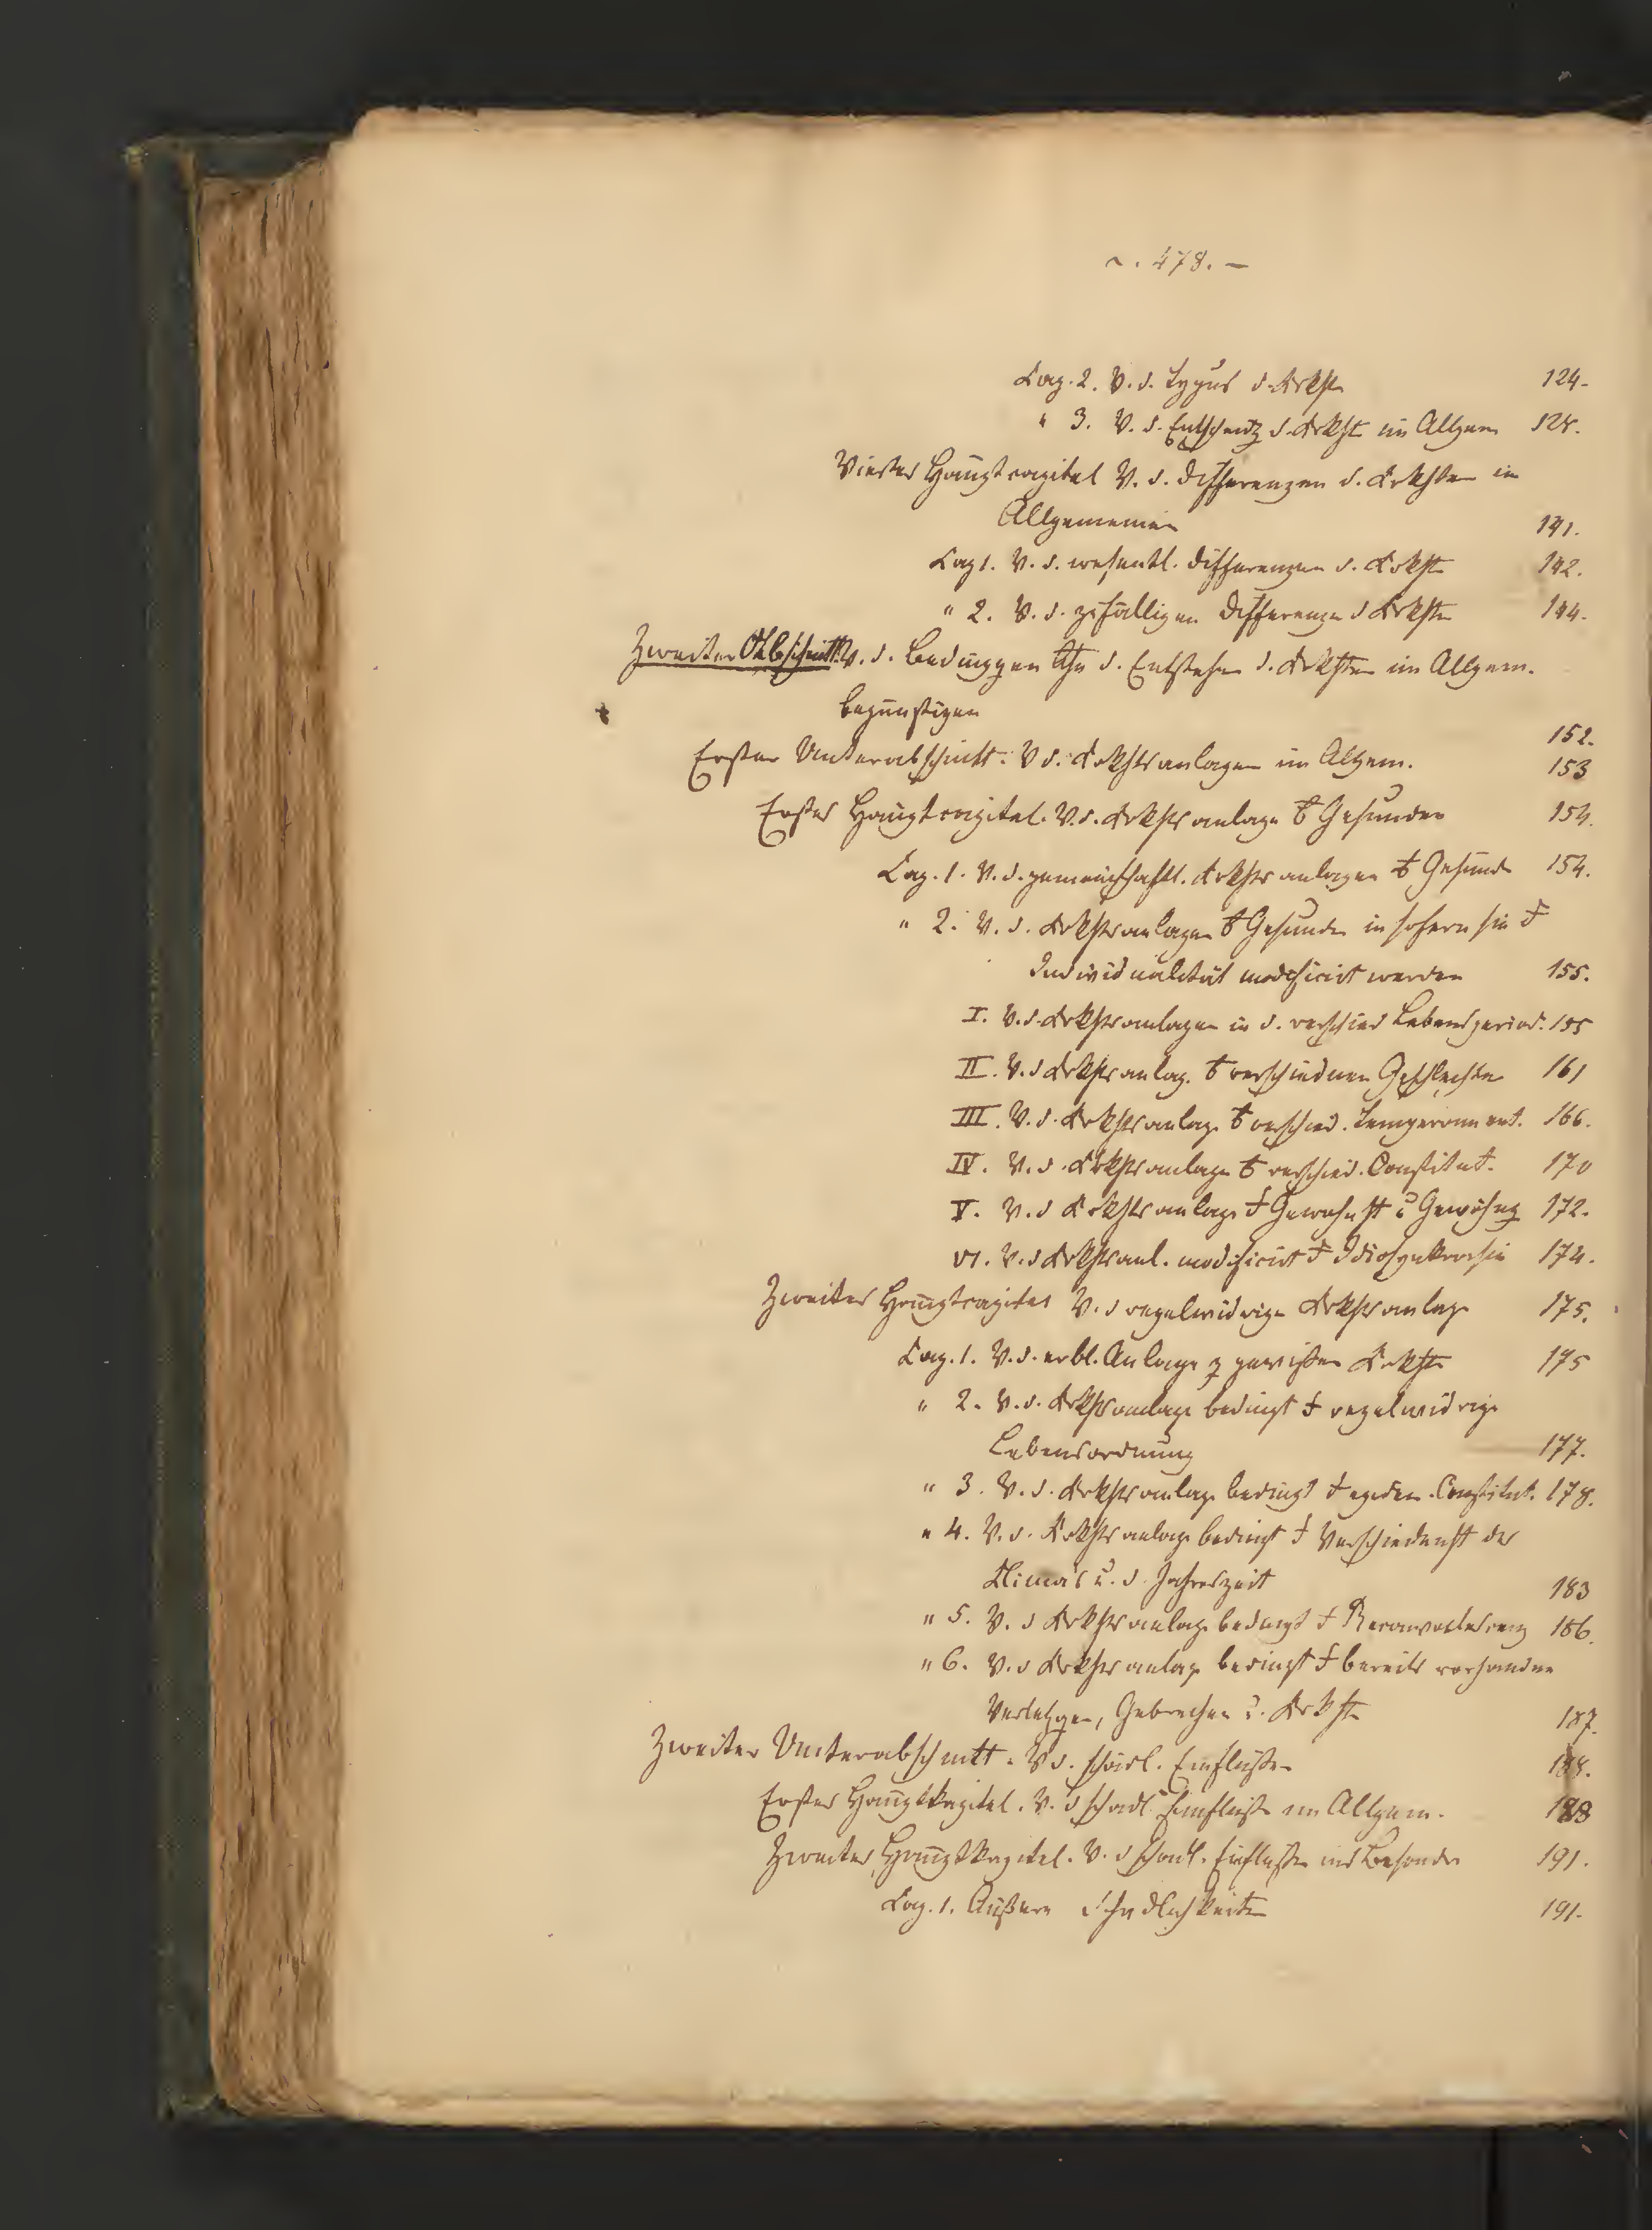 ~. 478. —
Cap. 2. V. d. Typus d. Krkht 124.
" 3. V. d. Entscheidg d. Krkht im Allgem 128.
Viertes Hauptcapitel V. d. Differenzen d. Krkhten im
Allgemeinen 141.
Cap 1. V. d. wesentl. Differenzen d. Krkht 142.
" 2. V. d. zufälligen Differenzen d Krkhten 144.
Zweiter Abschnitt. V. d. Bedinggen d. Entstehen d. Krkhten im Allgem.
begünstigen 152.
Erster Unterabschnitt. V d. Krkhtsanlagen im Allgem. 153
Erstes Hauptcapitel. V. d. Krkhtsanlage Gesunder 154.
Cap. 1. V. d. gemeinschaftl. Krkhtsanlagen Gesund 154.
" 2. V. d. Krkhtsanlagen Gesunder in sofern sie
Individualität modificirt werden 155.
I. V. d. Krkhtsanlagen in d. verschied Lebensperiod. 155
II. V. d Krkhtsanlag. verschiednen Geschlechter 161
III. V. d. Krkhtsanlage verschied. Temperament. 166.
IV. V. d. Krkhtsanlage verschied. Constitut. 170
V. V. d Krkhtsanlage Gewohnht u Gewöhng 172.
VI. V. d Krkhtsanl. modificirt Idiosynkrasie 174.
Zweites Hauptcapitel V. d regelwidrige Krkhtsanlage 175.
Cap. 1. V. d. erbl. Anlage z gewißen Krkht 175
" 2. V. d. Krkhtsanlage bedingt regelwidrige
Lebensordnung 177.
" 3. V. d. Krkhtsanlage bedingt epidem. Constitut. 178.
" 4. V. d. Krkhtsanlage bedingt Verschiedenht des
Klima's u. d. Jahreszeit 183
" 5. V. d Krkhtsanlage bedingt Reconvalescenz 186.
" 6. V. d Krkhtsanlage bedingt bereits vorhandne
Verletzgen, Gebrechen u. Krkht 187.
Zweiter Unterabschnitt. V d. schädl. Einflüßen 188.
Erstes Hauptkapitel. V. d schädl. Einflüße im Allgem. 188
Zweites Hauptkapitel. V. d schädl. Einflüßen ins Besonder 191.
Cap. 1. Äußere Schädlichkeiten 191.